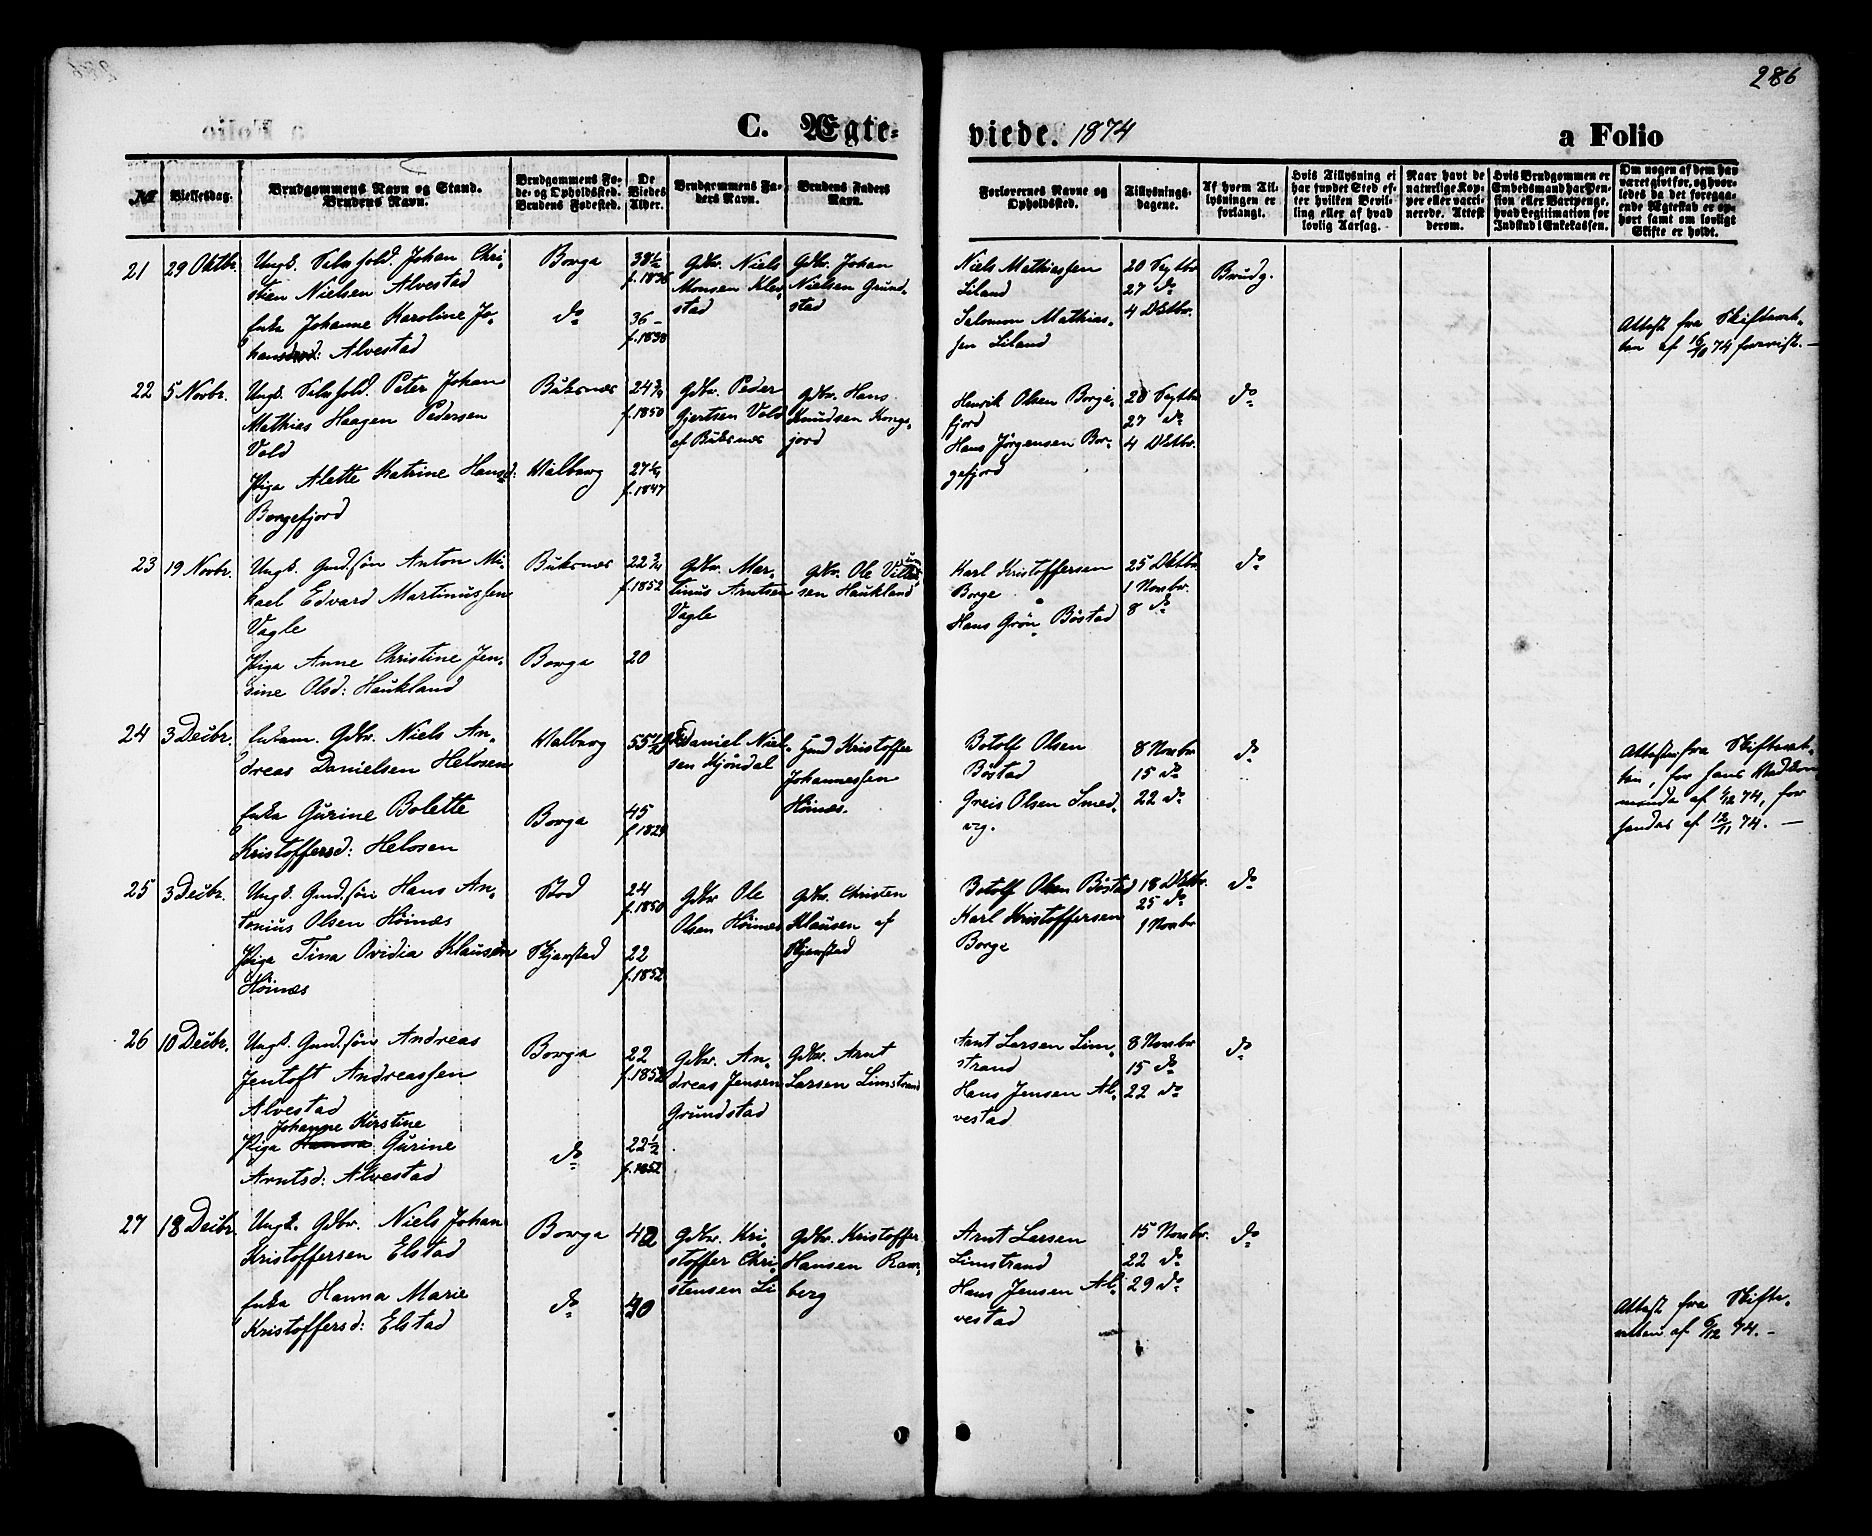 286
C. Ægte-
viede. 1874
a Folio
№
Vielsesdag.
Brudgommens Navn og Stand.
Brudens Navn.
Brudgommens Fø-
de- og Opholdssted.
Brudens Fødested.
De
Viedes
Alder.
Brudgommens Fa-
ders Navn.
Brudens Faders
Navn.
Forlovernes Navne og
Opholdssted.
Tillysnings-
dagene.
Af hvem Til-
lysningen er
forlangt.
Hvis Tillysning ei
har fundet Sted ef-
ter hvilken Bevil-
ling eller af hvad
lovlig Aarsag.
Naar havt de
naturlige Kop-
per eller vacci-
nerede. Attest
derom.
Hvis Brudgommen er
Embedsmand har Pen-
sion eller Vartpenge,
hvad Legitimation for
Indskud i Enkekassen.
Om nogen af dem hav
været gift før, og hvor-
ledes da det foregaa-
ende Ægteskab er op-
hørt samt om lovligt
Skifte er holdt.
21
29 Oktbr.
Ungk. Johan Chri-
stien Nielsen Alvestad
Enke Johanne Karoline Jo-
hansd: Alvestad
Borge
do
38½
f. 1836
36
f. 1838
Gdbr. Niels
Monsen
stad
Gdbr. Johan
Nielsen Grund-
stad
Niels Mathiassen
Liland
Salomon Mathias-
sen Liland
20 Septbr
27 do
4 Oktbr.
Brudg.
Attest fra Skifteret-
ten af 16/10 74 forevist.
22
5 Novbr.
Ungk. Peter Johan
Mathias Haagen Pedersen
Vold
Pige Alette Katrine Hansd:
Borgefjord
Buksnæs
Walberg
24¾
f. 1850
27¼
f. 1847
Gdbr. Peder
Gjertsen Vold
af Buksnæs
Gdbr. Hans
Knudsen Konge-
fjord
Henrik Olsen Borge-
fjord
Hans Jørgensen Bor-
gefjord
20 Septbr
27 do
4 Oktbr.
do
23
19 Novbr.
Ungk. Gmd.søn Anton Mi-
kael Edvard Martinussen
Vagle
Pige Anne Christine Jen-
sine Olsd: Haukland
Buksnæs
Borge
22¾
f. 1852
20
Gdbr. Mar-
tinus Arntsen
Vagle
Gdbr. Ole
sen Haukland
Karl Kristoffersen
Borge
Hans Grøn Bøstad
25 Oktbr
1 Novbr.
8 do
do
24
3 Decbr.
Enkem. Gdbr. Niels An-
dreas Danielsen Helosen
Enke Gurine Bolette
Kristoffersd: Helosen
Walberg
Borge
45
f. 1829
Daniel Niel-
sen Kjøndal
Gmd Kristoffer
Johannessen
Høinæs.
Botolf Olsen
Bøstad
Greis Olsen Smed-
vig.
8 Novbr
15 do
22 do
do
Attester fra Skifteret-
ten, for hans Vedkom-
mende af 1/12 74, for
hendes af 12/11 74.
25
3 Decbr.
Ungk. Gmd.søn Hans An-
tonius Olsen Høinæs
Pige Tina Ovidia Klausen
Høinæs
Stod
Skjerstad
24
f. 1850
22
f. 1852
Gdbr Ole
Olsen Høinæs
Gdbr. Christen
Klausen af
Skjerstad
Botolf Olsen Bøstad
Karl Kristoffersen
Borge
18 Oktbr.
25 do
1 Novbr
do
26
10 Decbr.
Ungk. Gmd.søn Andreas
Jentoft Andreassen
Alvestad
Johanne Kirstine
Pige Hanna Gurine
Arntsd: Alvestad
Borge
do
22
f. 1852
22½
f. 1852
Gdbr. An-
dreas Jensen
Grundstad
Gdbr. Arnt
Larsen Limstrand
Arnt Larsen Lim-
strand
Hans Jensen Al-
vestad
8 Novbr
15 do
22 do
do
27
18 Decbr
Ungk. Gdbr. Niels Johan
Kristoffersen Elstad
Enke Hanna Marie
Kristoffersd: Elstad
Borge
do
42
40
Gdbr. Kri-
stoffer Chri-
stensen Li
Gdbr. Kristoffer
Hansen Ram-
berg
Arnt Larsen
Limstrand
Hans Jensen Al-
vestad
15 Novbr.
22 do
29 do
do
Attest fra Skifte-
retten af 9/12 74.